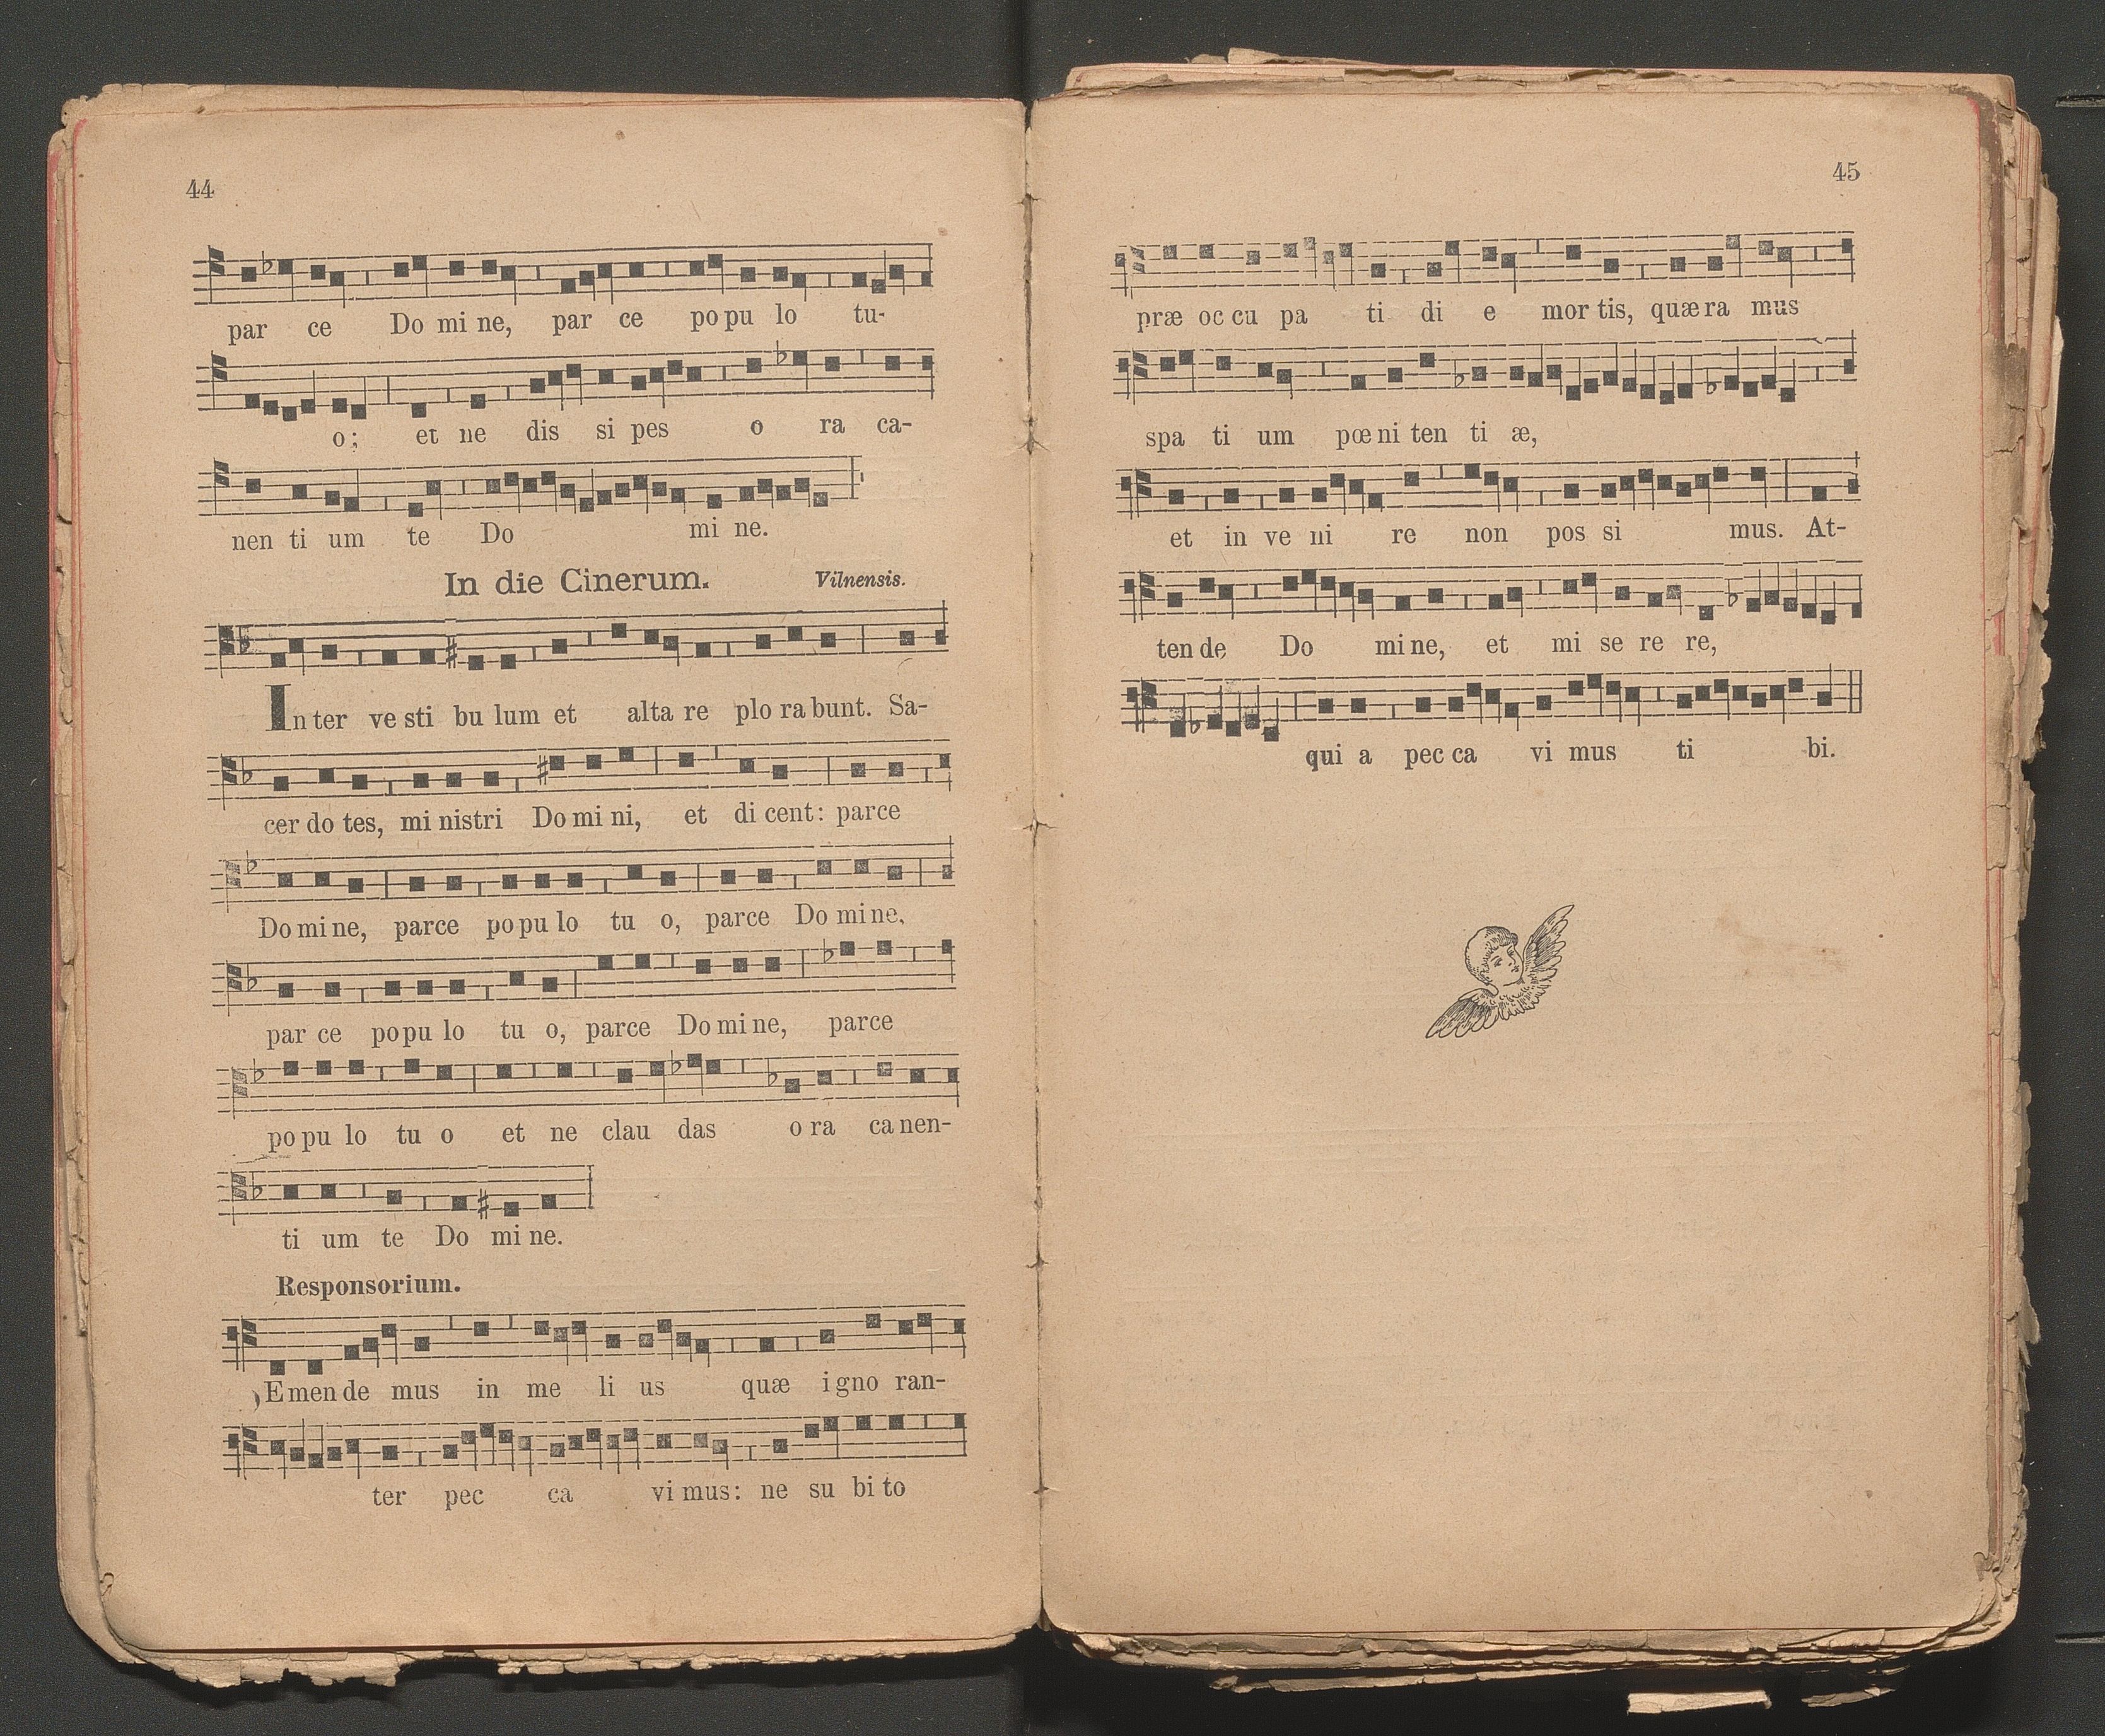 44
par ce Do mi ne, par ce po pu lo tu-
o; et ne dis si pes o ra ca-
nen ti um te Do mi ne.
In die Cinerum. Vilnensis.
In ter ve sti bu lum et alta re plo ra bunt. Sa-
cer do tes, mi nistri Do mi ni, et di cent: parce
Do mi ne, parce po pu lo tu o, parce Do mi ne,
par ce po pu lo tu o, parce Do mi ne, parce
po pu lo tu o et ne clau das o ra ca nen-
ti um te Do mi ne.
Responsorium.
Emen de mus in me li us quæ i gno ran-
ter pec ca vi mus: ne su bi to
45
præ oc cu pa ti di e mor tis, quæ ra mus
spa ti um pœ ni ten ti æ,
et in ve ni re non pos si mus. At-
ten de Do mi ne, et mi se re re,
qui a pec ca vi mus ti bi.